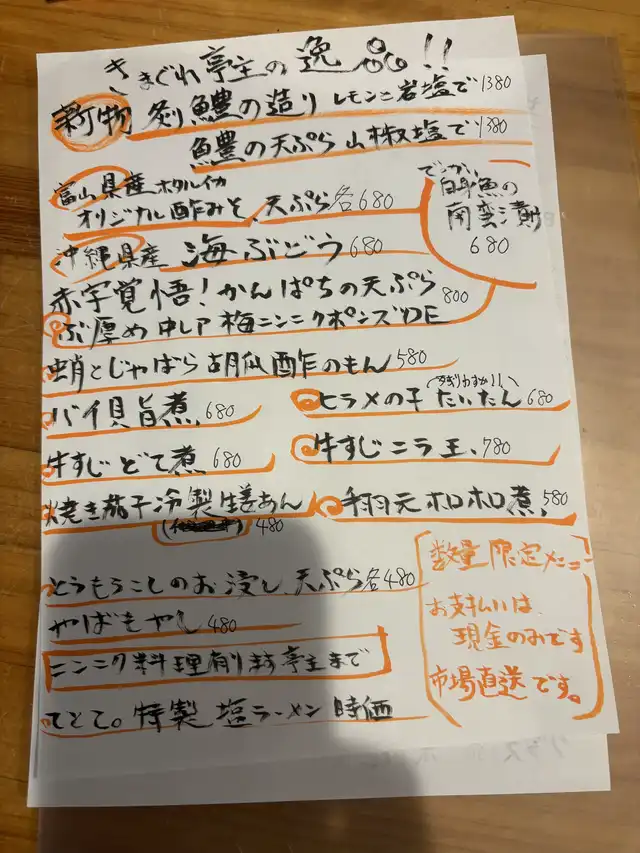 きまぐれ亭主の逸品!!
新物 炙り鱧の造り レモンと岩塩で 1380
鱧の天ぷら 山椒塩で 1380
富山県産 ホタルイカ
オリジナル酢みそ、天ぷら各680
でっかい
白身魚の
南蛮漬
680
沖縄県産 海ぶどう 680
赤字覚悟!かんぱちの天ぷら 800
ぶ厚め中レア 梅ニンニクポンズDE
蛸とじゃばら胡瓜酢のもん 580
バイ貝旨煮 680
ヒラメの子 たいたん 680
牛すじどて煮 680
牛すじニラ玉、780
焼き茄子冷製生姜あん
480
手羽元ホロホロ煮 580
とうもろこしのお浸し、天ぷら各480
やばもやし 480
ニンニク料理有ります亭主まで
てとて。特製 塩ラーメン 時価
数量限定メニュー
お支払いは
現金のみです
市場直送です。